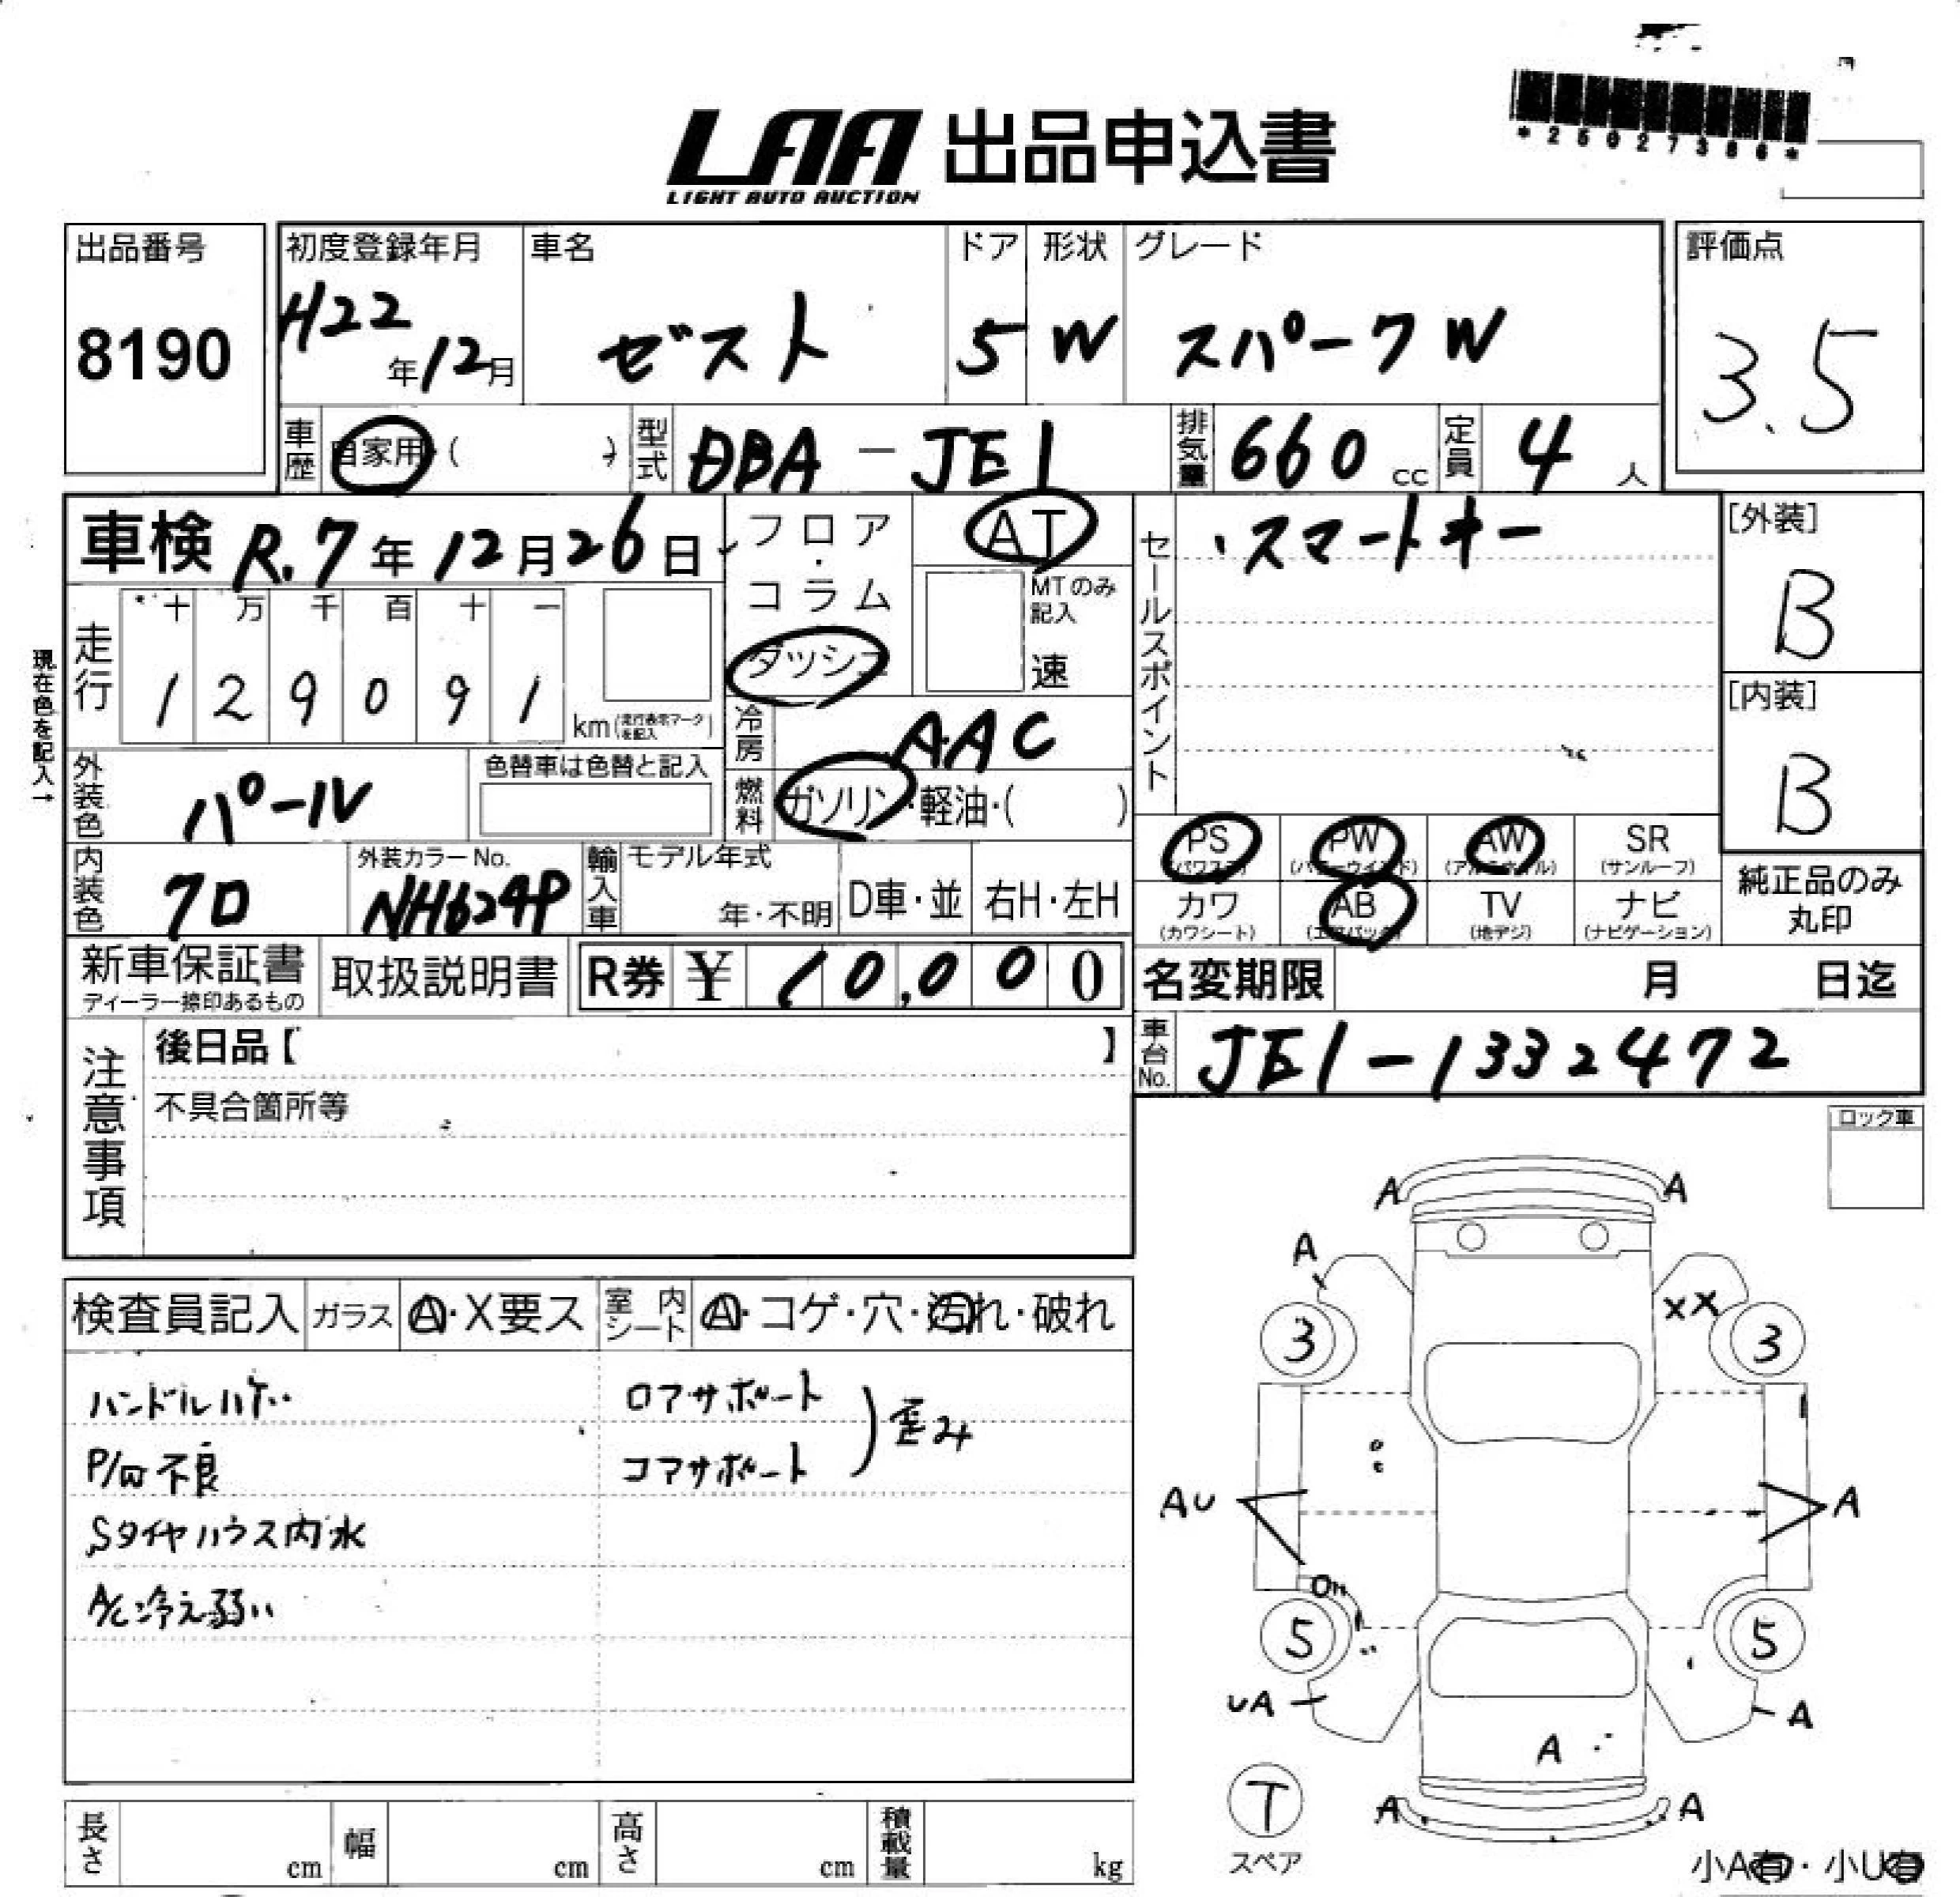 *25027386*
LAA 出品申込書
LIGHT AUTO AUCTION
出品番号
8190
初度登録年月
H22年12月
車名
ゼスト
ドア
5
形状
W
グレード
スパークW
評価点
3.5
車歴 自家用・( )
型式 DBA-JE1
排気量 660 cc
定員 4 人
車検 R.7年12月26日
フロア・コラム
ダッシュ
AT
MTのみ記入
速
走行
十 万 千 百 十 一
1 2 9 0 9 1
km(走行表示マークを記入)
現在色を記入→
冷房 AAC
燃料 ガソリン・軽油・( )
外装色 パール
色替車は色替と記入
内装色 クロ
外装カラーNo.
NH624P
輸入車 モデル年式
年・不明
D車・並
右H・左H
セールスポイント
・スマートキー
[外装]
B
[内装]
B
PS (パワステ)
PW (パワーウインド)
AW (アルミホイル)
SR (サンルーフ)
カワ (カワシート)
AB (エアバック)
TV (地デジ)
ナビ (ナビゲーション)
純正品のみ
丸印
新車保証書
ディーラー捺印あるもの
取扱説明書
R券 ¥ 10,000
名変期限 月 日迄
車台No. JE1-1332472
注意事項
後日品【 】
不具合箇所等
ロック車
検査員記入
ガラス Ⓐ・X要ス
室内シート Ⓐ・コゲ・穴・汚れ・破れ
ハンドルハゲ
P/W不良
Sタイヤハウス内水
A/C冷え弱い
ロアサポート
コアサポート
歪み
A A
A
XX
3 3
AU A
5 5
UA A
A
T
スペア
A A
小A有・小U有
長さ cm
幅 cm
高さ cm
積載量 kg